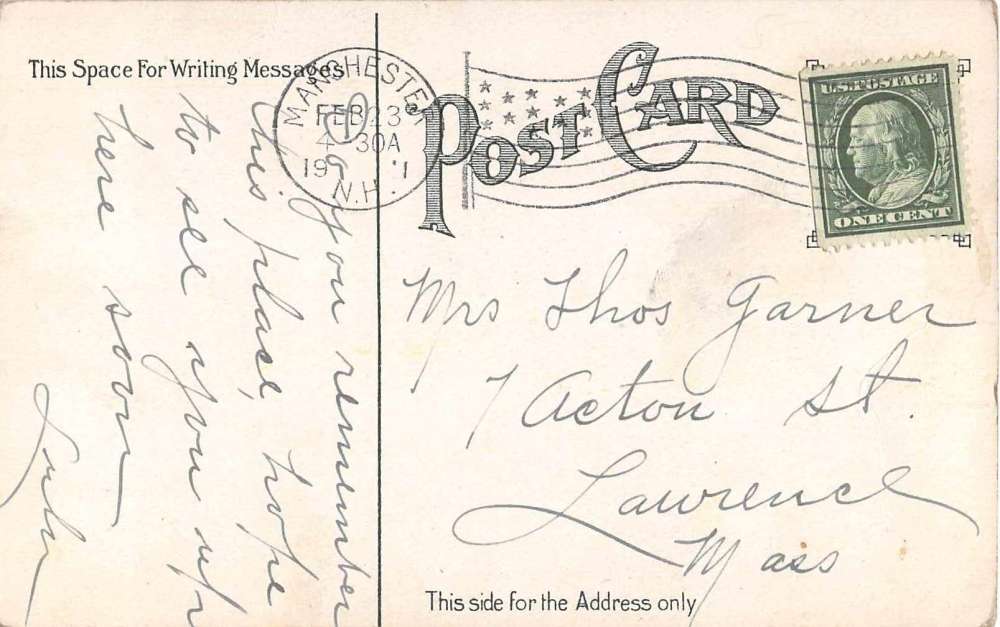 This Space For Writing Messages
POST CARD
MANCHESTER
FEB 23
4 30A
19 11
N.H.
U.S. POSTAGE
ONE CENT
Do you remember
this place, hope
to see you up
here soon
Mrs Thos Garner
7 Acton St.
Lawrence
Mass
This side for the Address only